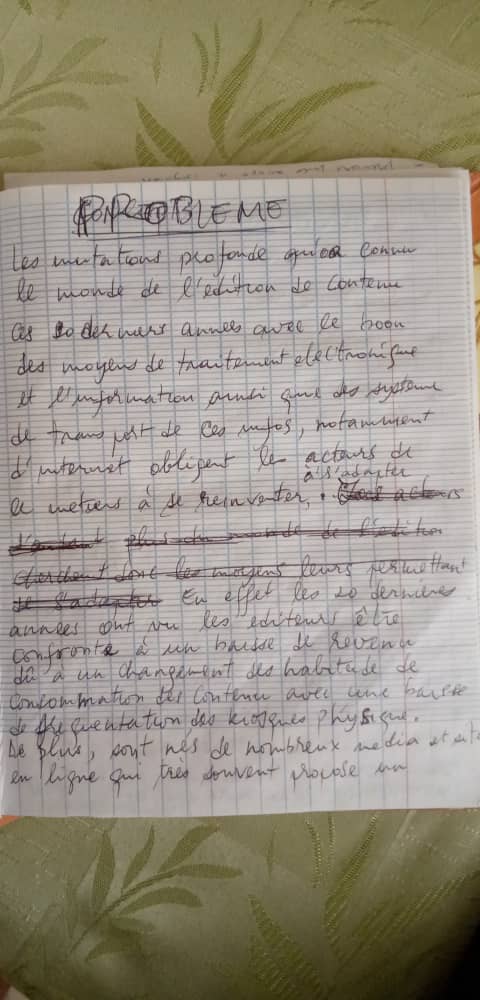 PROBLEME
Les mutations profonde qu'oa connu
le monde de l'édition de contenu
ces 20 derniers années avec le boon
des moyens de traitement electronique
et l'information ainsi que des système
de transport de ces infos, notamment
d'internet obligent les acteurs de
à s'adapter
ce metiers à se reinventer,
l'autant plus du monde de l'édition
cherchent donc les moyens leurs permettant
de s'adapter En effet les 20 dernières
années ont vu les editeurs être
confrontés à un baisse de revenu
dû a un changement des habitude de
consommation des contenu avec une baisse
de frequentation des kiosques physique.
De plus, sont nés de nombreux media et site
en ligne qui très souvent propose un